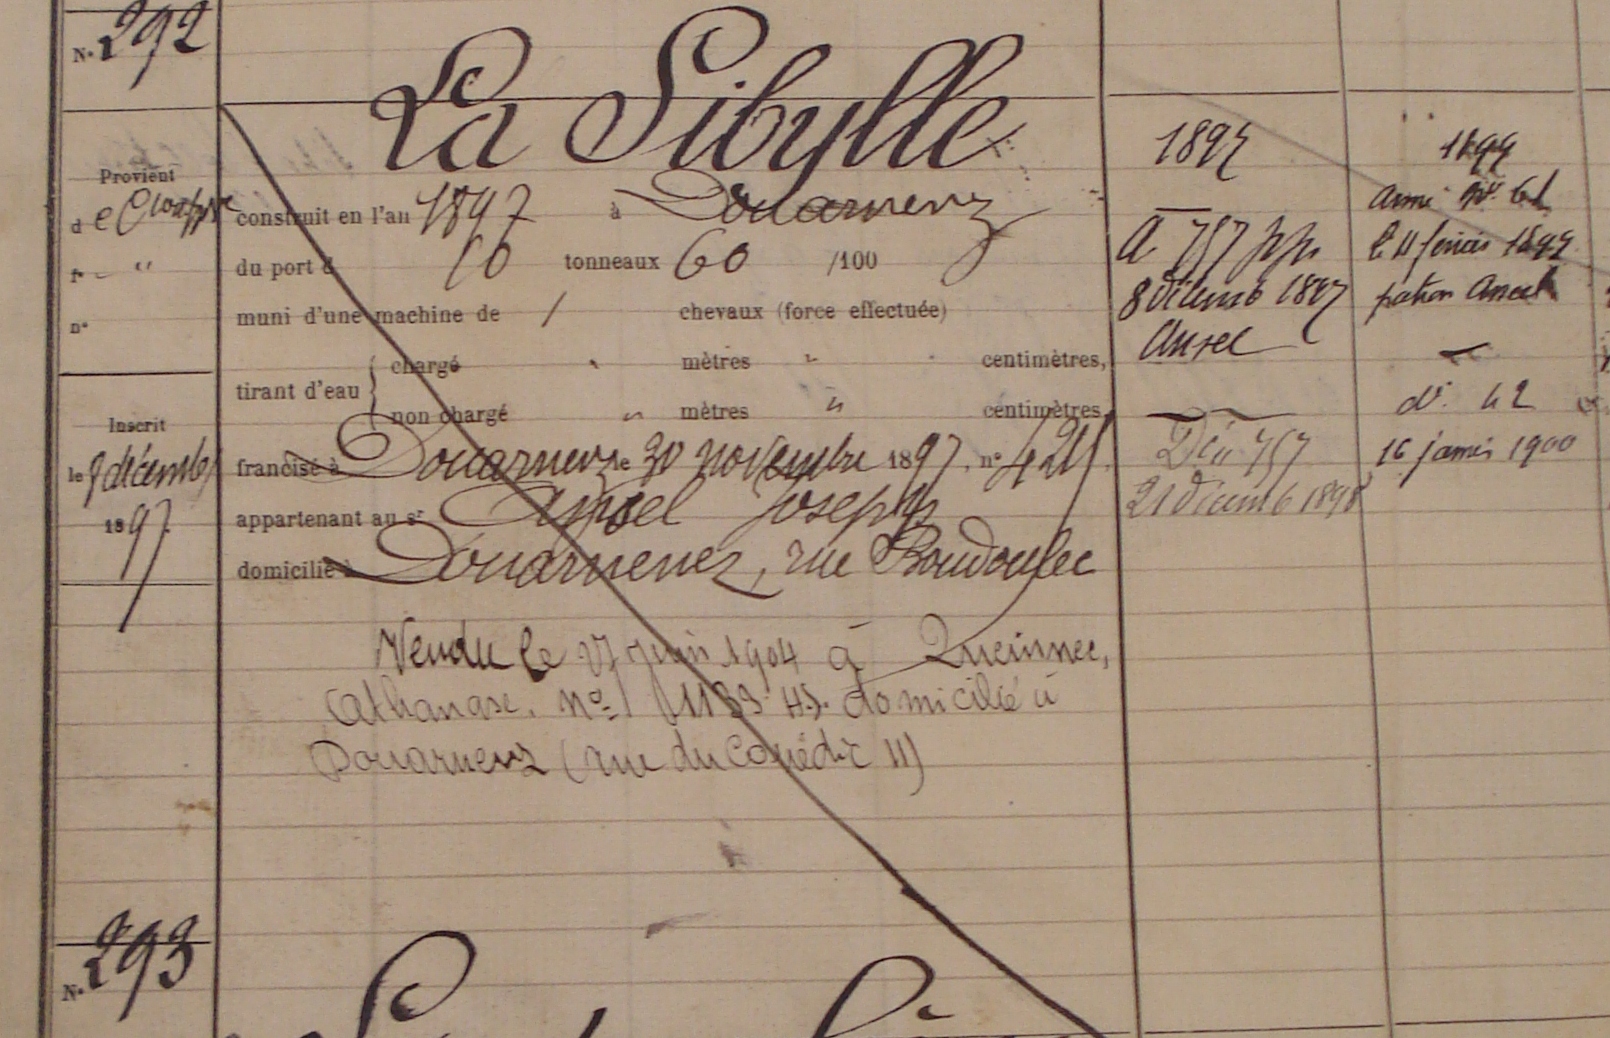 N° 292
La Sibylle
Provient
d e
construit en l'an 1897 à Douarnenez
du port d 10 tonneaux 60 /100
n°
muni d'une machine de / chevaux (force effectuée)
tirant d'eau
chargé " mètres " centimètres,
non chargé " mètres " centimètres
Inscrit
le 8 décemb
1897
francisé à Douarnenez le 30 novembre 1897. n°
appartenant au sr Ansel Joseph
domicilié à Douarnenez, rue Boudoulec
Vendu le 27 juin 1904 à Queinnec,
Athanase. n° 1133 HS. domicilié à
Douarnenez (rue du Couédic 11)
1897
A 757
8 décemb 1897
Ansel
757
21 décemb 1898
1899
armé
le 11 février 1899
patron Ansel
d°. 42
16 janvier 1900
N° 293